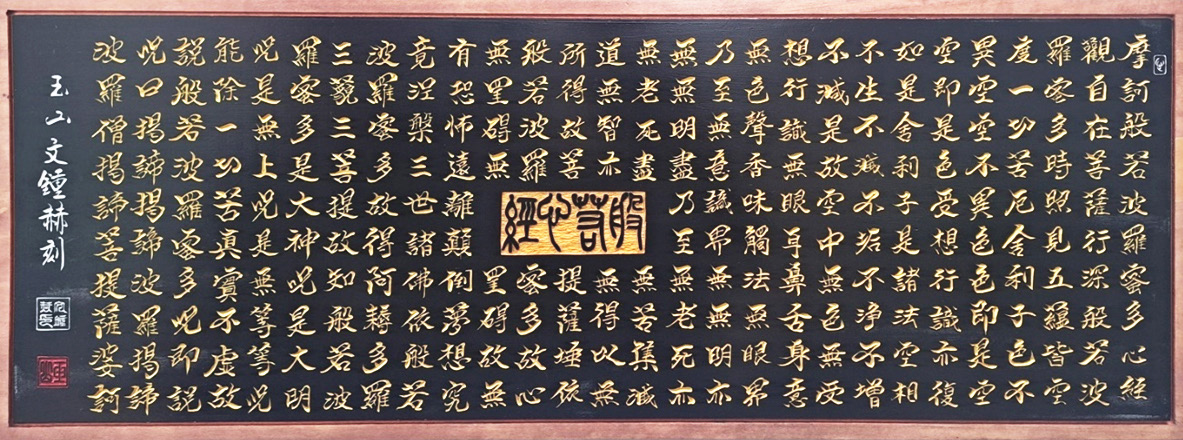 摩訶般若波羅蜜多心經
觀自在菩薩行深般若波
羅蜜多時照見五蘊皆空
度一切苦厄舍利子色不
異空空不異色色即是空
空即是色受想行識亦復
如是舍利子是諸法空相
不生不滅不垢不淨不增
不減是故空中無色無受
想行識無眼耳鼻舌身意
無色聲香味觸法無眼界
乃至無意識界無無明亦
無無明盡乃至無老死亦
無老死盡無苦集滅
道無智亦無得以無
所得故菩提薩埵依
般若波羅蜜多故心
無罣碍無罣碍故無
有恐怖遠離顛倒夢想究
竟涅槃三世諸佛依般若
波羅蜜多故得阿耨多羅
三藐三菩提故知般若波
羅蜜多是大神呪是大明
呪是無上呪是無等等呪
能除一切苦真實不虛故
說般若波羅蜜多呪即說
呪曰揭諦揭諦波羅揭諦
波羅僧揭諦菩提薩婆訶
般若心經
玉山文鐘赫刻